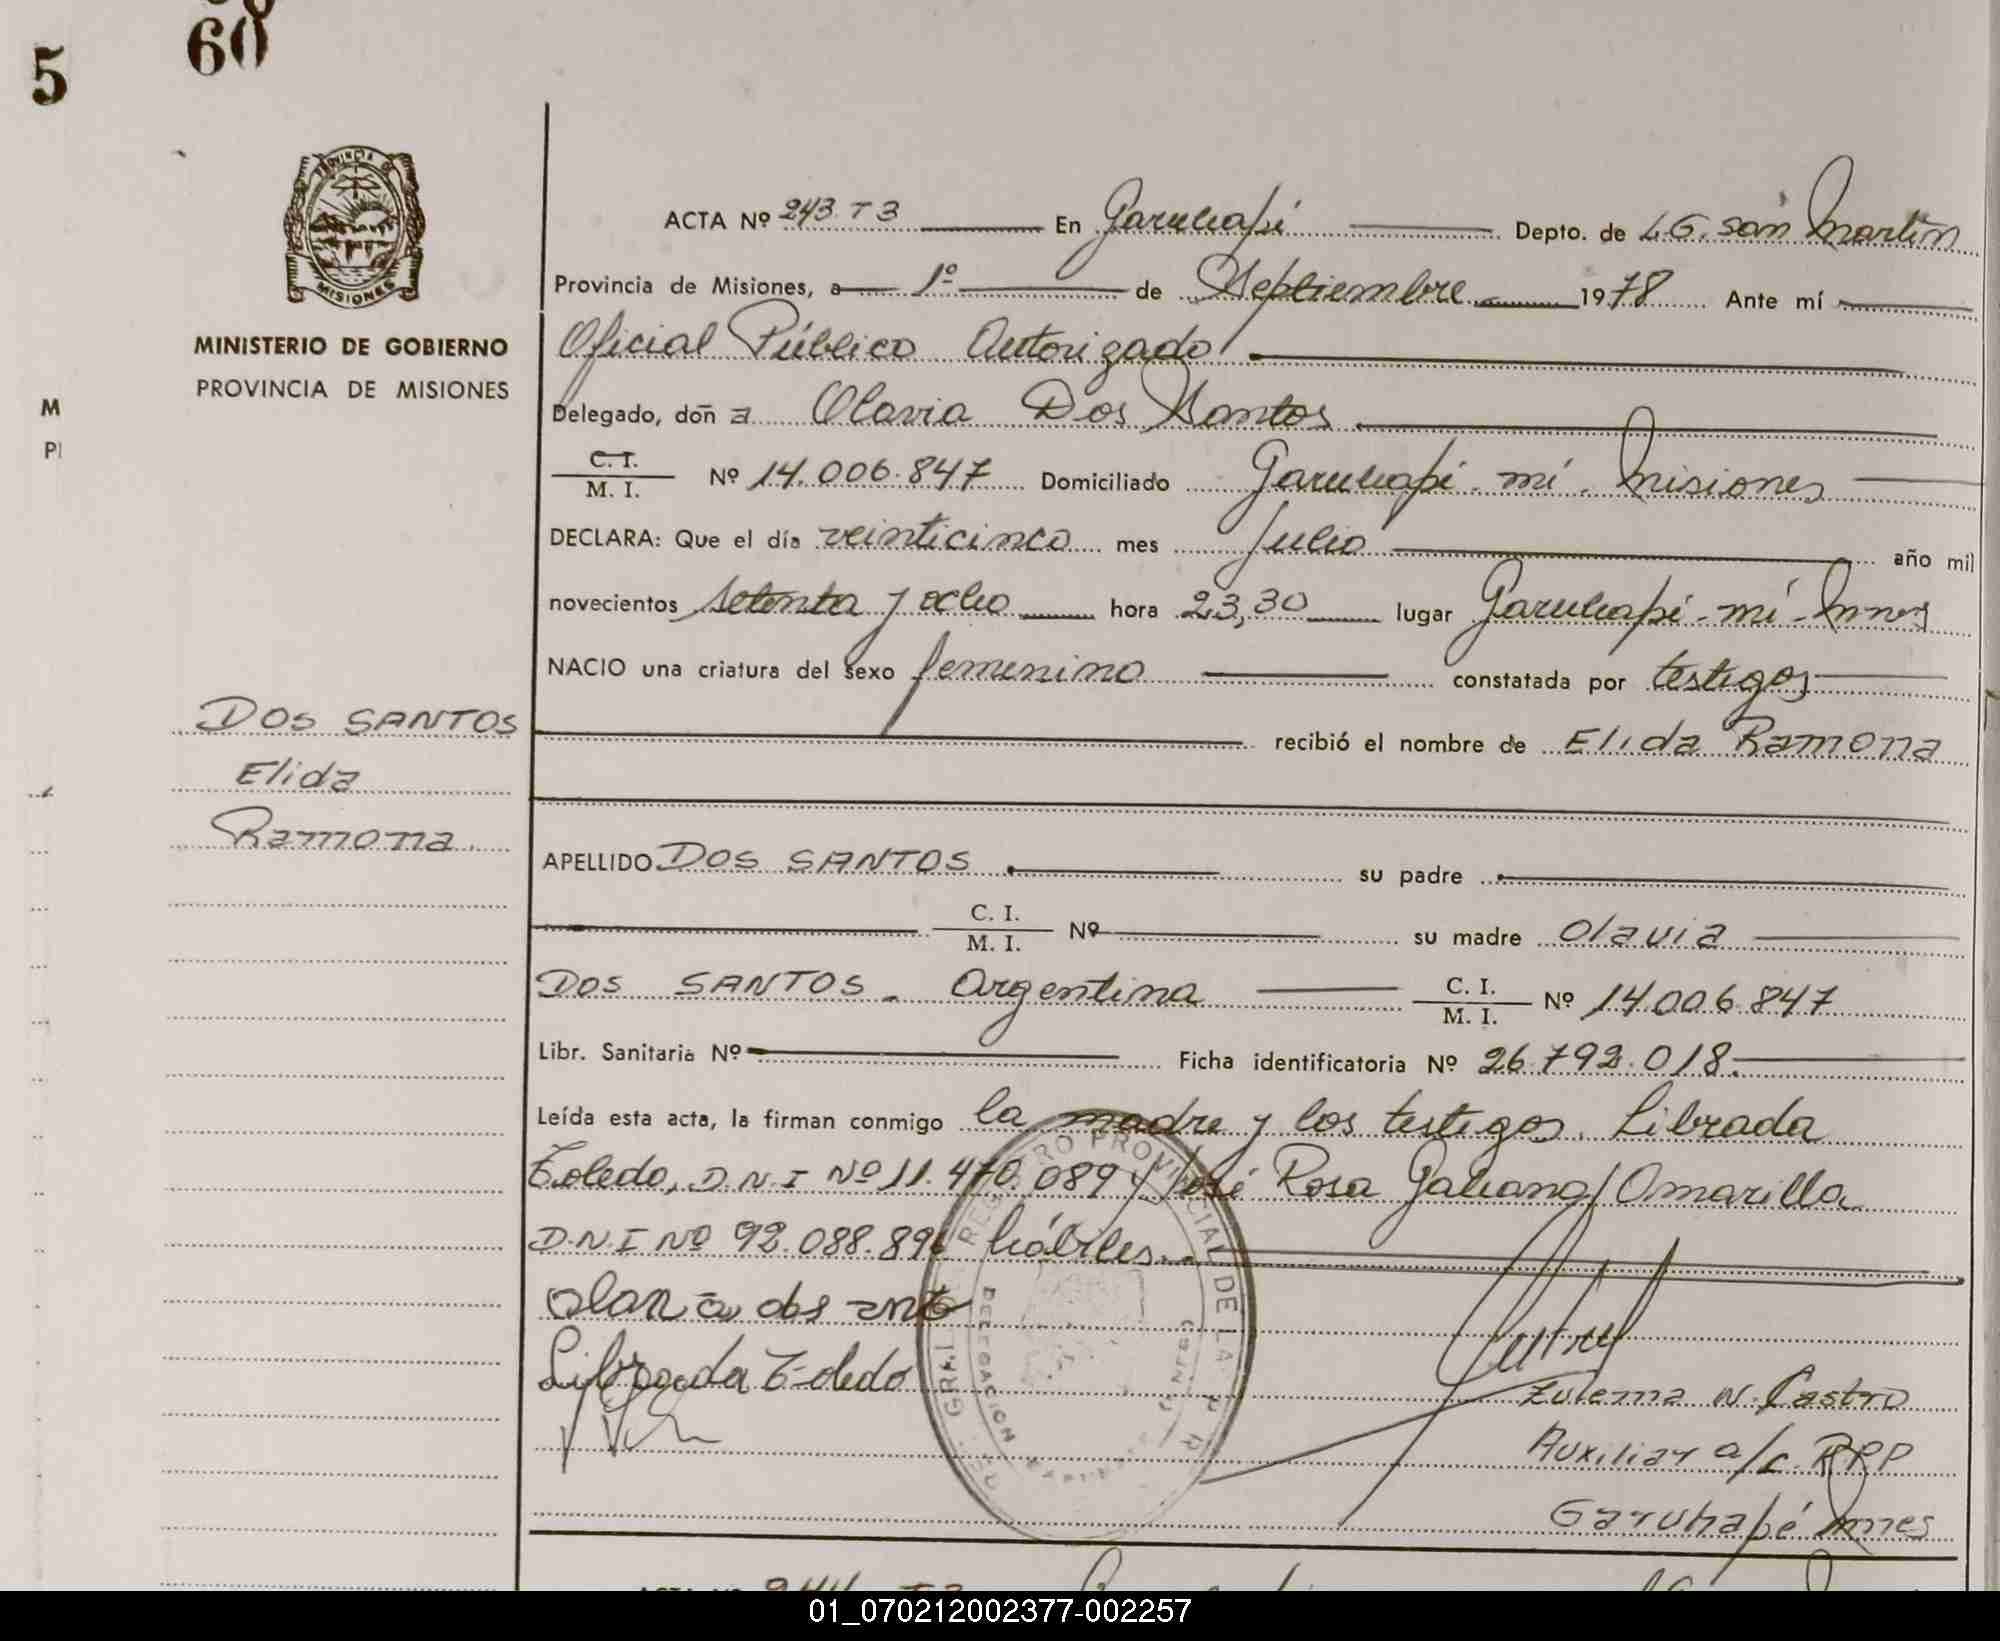 60
5
MINISTERIO DE GOBIERNO
PROVINCIA DE MISIONES
M
PI
ACTA Nº 243 T 3 En Garuhapé Depto. de L.G. san Martin
Provincia de Misiones, a 1º de Septiembre 1978 Ante mí
Oficial Público Autorizado
Delegado, doña Olavia Dos Santos
C. I.
M. I. Nº 14.006.847 Domiciliado Garuhapé-mí. Misiones
DECLARA: Que el día veinticinco mes Julio año mil
novecientos setenta y ocho hora 23,30 lugar Garuhapé-mí-Mnes
NACIO una criatura del sexo femenino constatada por testigos
recibió el nombre de Elida Ramona
DOS SANTOS
Elida
Ramona.
APELLIDO DOS SANTOS su padre
C. I.
M. I. Nº su madre Olavia
DOS SANTOS. Argentina C. I.
M. I. Nº 14.006.847
Libr. Sanitaria Nº Ficha identificatoria Nº 26.792.018.
Leída esta acta, la firman conmigo la madre y los testigos. Librada
Toledo, D.N.I Nº 11.470.089 y José Rosa Galiano/Amarilla
D.N.I Nº 92.088.896 hábiles.
Librada Toledo
Zulema N. Castro
Auxiliar a/c. R.P.P
Garuhapé Mnes
REGISTRO PROVINCIAL DE LA
DELEGACION
ACTA Nº 244 T3
01_070212002377-002257